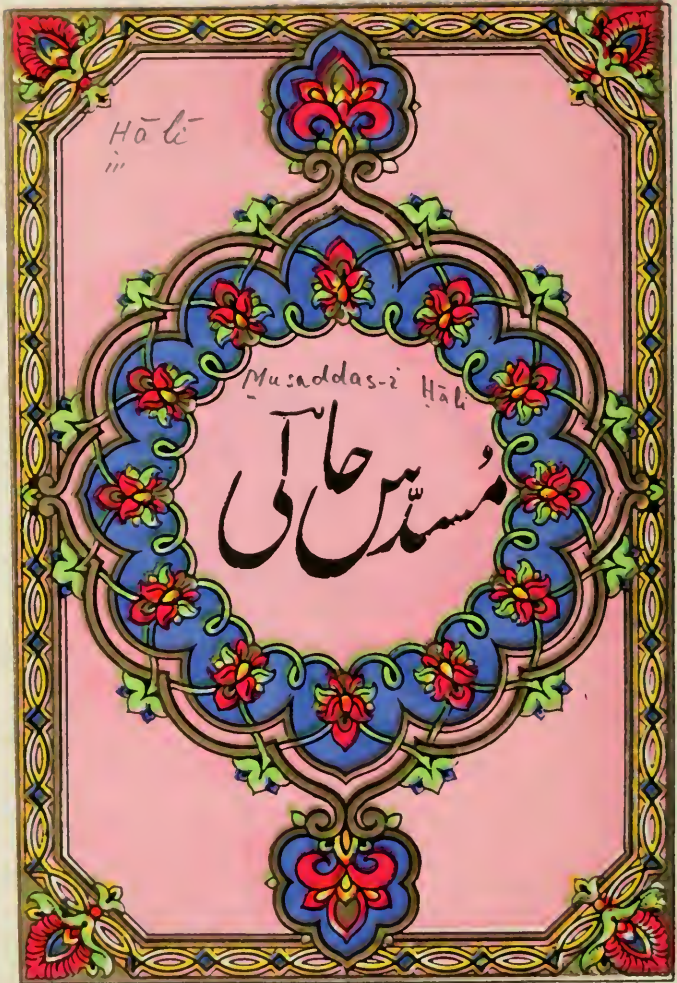 Hālī
Musaddas-i Ḥālī
مُسدّسِ حالی